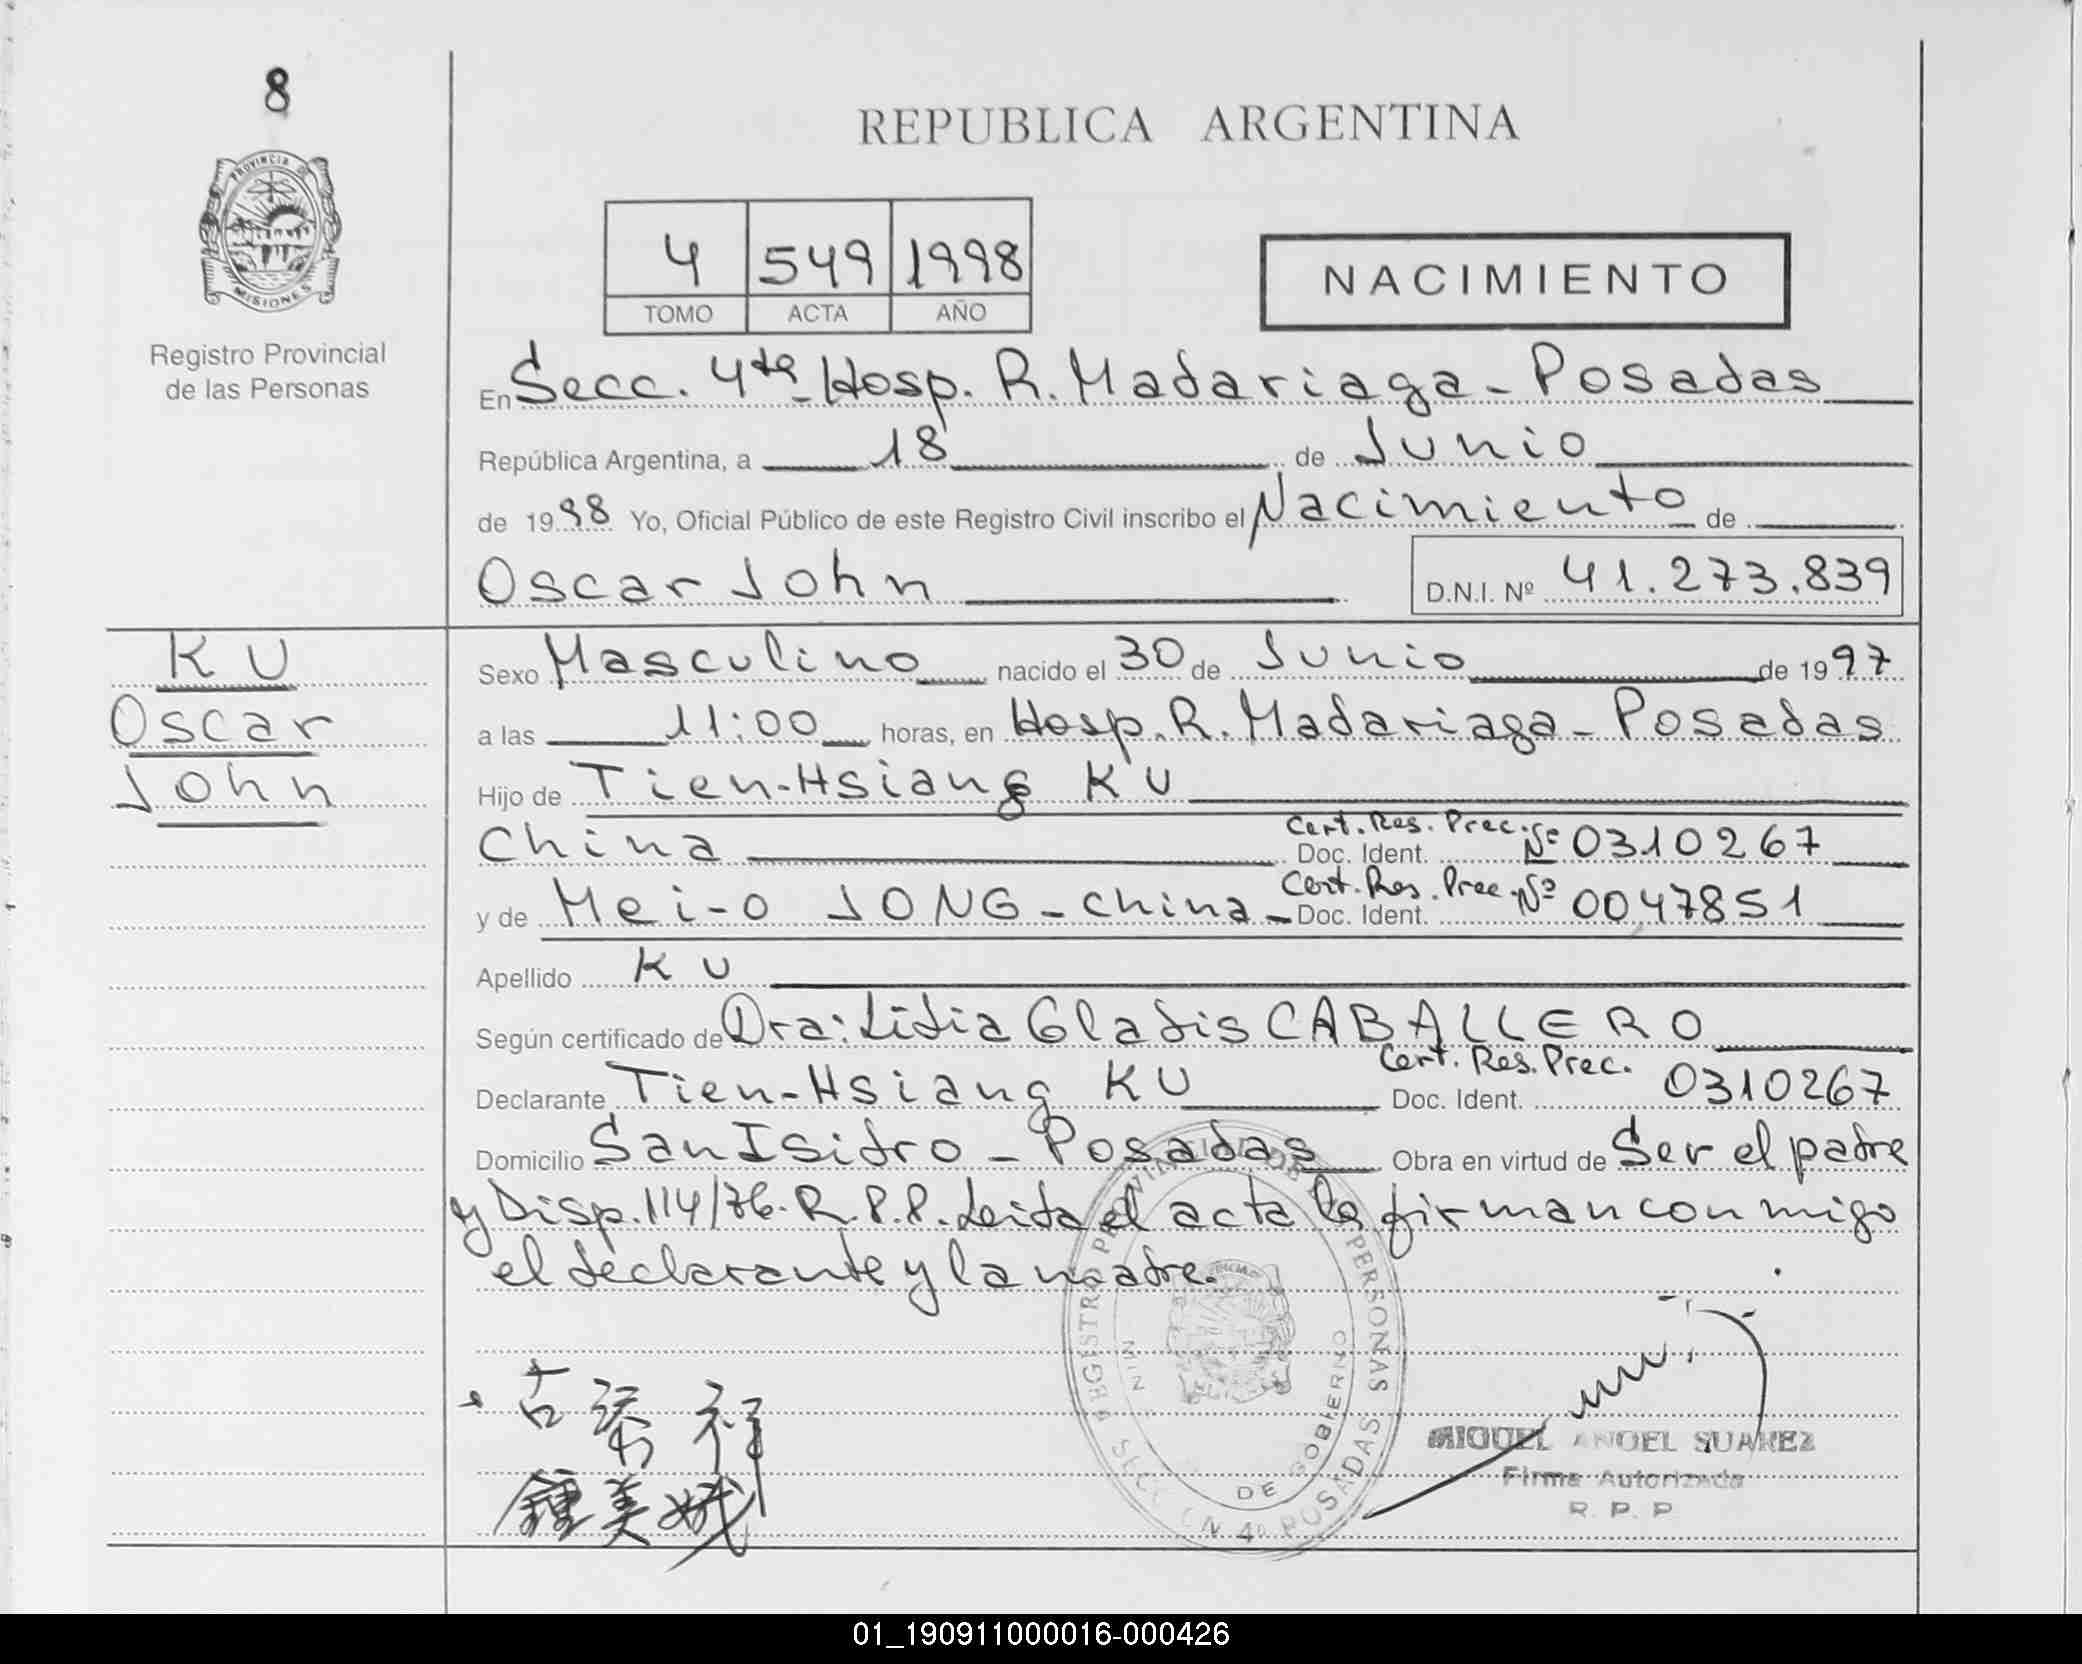 8
PROVINCIA DE
MISIONES
Registro Provincial
de las Personas
REPUBLICA ARGENTINA
4 549 1998
TOMO ACTA AÑO
NACIMIENTO
En Secc. 4ta Hosp. R. Madariaga - Posadas
República Argentina, a 18 de Junio
de 1998 Yo, Oficial Público de este Registro Civil inscribo el Nacimiento de
Oscar John D.N.I. Nº 41.273.839
KU
Oscar
John
Sexo Masculino nacido el 30 de Junio de 1997
a las 11:00 horas, en Hosp. R. Madariaga - Posadas
Hijo de Tien-Hsiang KU
China Cert. Res. Prec. Nº Doc. Ident. 0310267
y de Mei-o JONG - China - Cert. Res. Prec. Nº Doc. Ident. 0047851
Apellido KU
Según certificado de Dra: Lidia Gladis CABALLERO
Declarante Tien-Hsiang KU Cert. Res. Prec. Doc. Ident. 0310267
Domicilio San Isidro - Posadas Obra en virtud de Ser el padre
y Disp. 114/76. R.P.P. Leida el acta la firman conmigo
el declarante y la madre.
REGISTRO PROVINCIAL DE LAS PERSONAS
DE GOBIERNO
SECCION 4ª POSADAS
古 祥
鍾美娥
MIGUEL ANGEL SUAREZ
Firma Autorizada
R. P. P
01_190911000016-000426